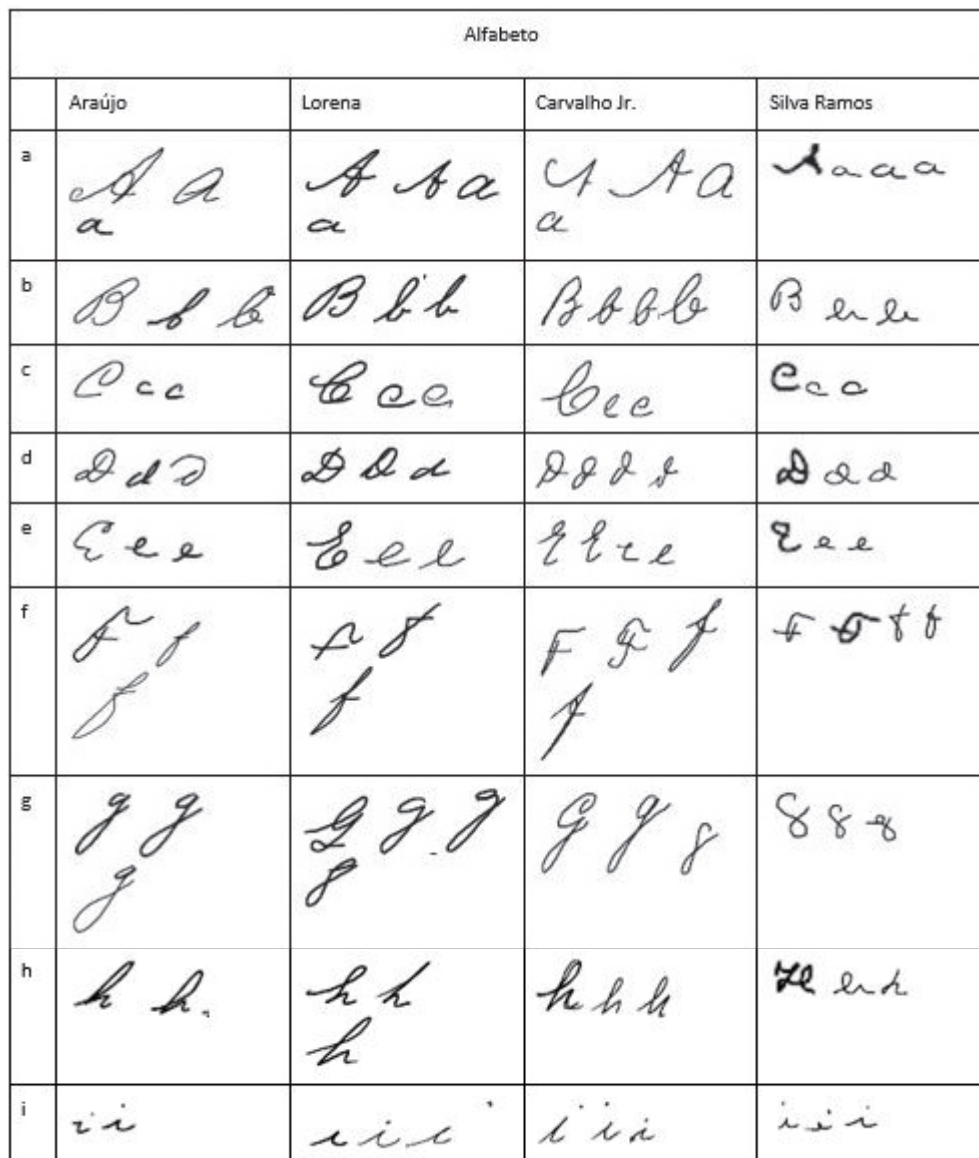 Alfabeto
Araújo Lorena Carvalho Jr. Silva Ramos
a A a A A a A A a A a a a
a a a
b B b b B b b B b b b B b b
c C c c C c c C c c C c c
d D d d D D d D d d d D d d
e E e e E e e E E e e E e e
f F f F F F F f F F f f
f f f
g g g G g g G g g g g g
g g
h h h. h h h h h H h h
h
i i i i i i i i i i i i